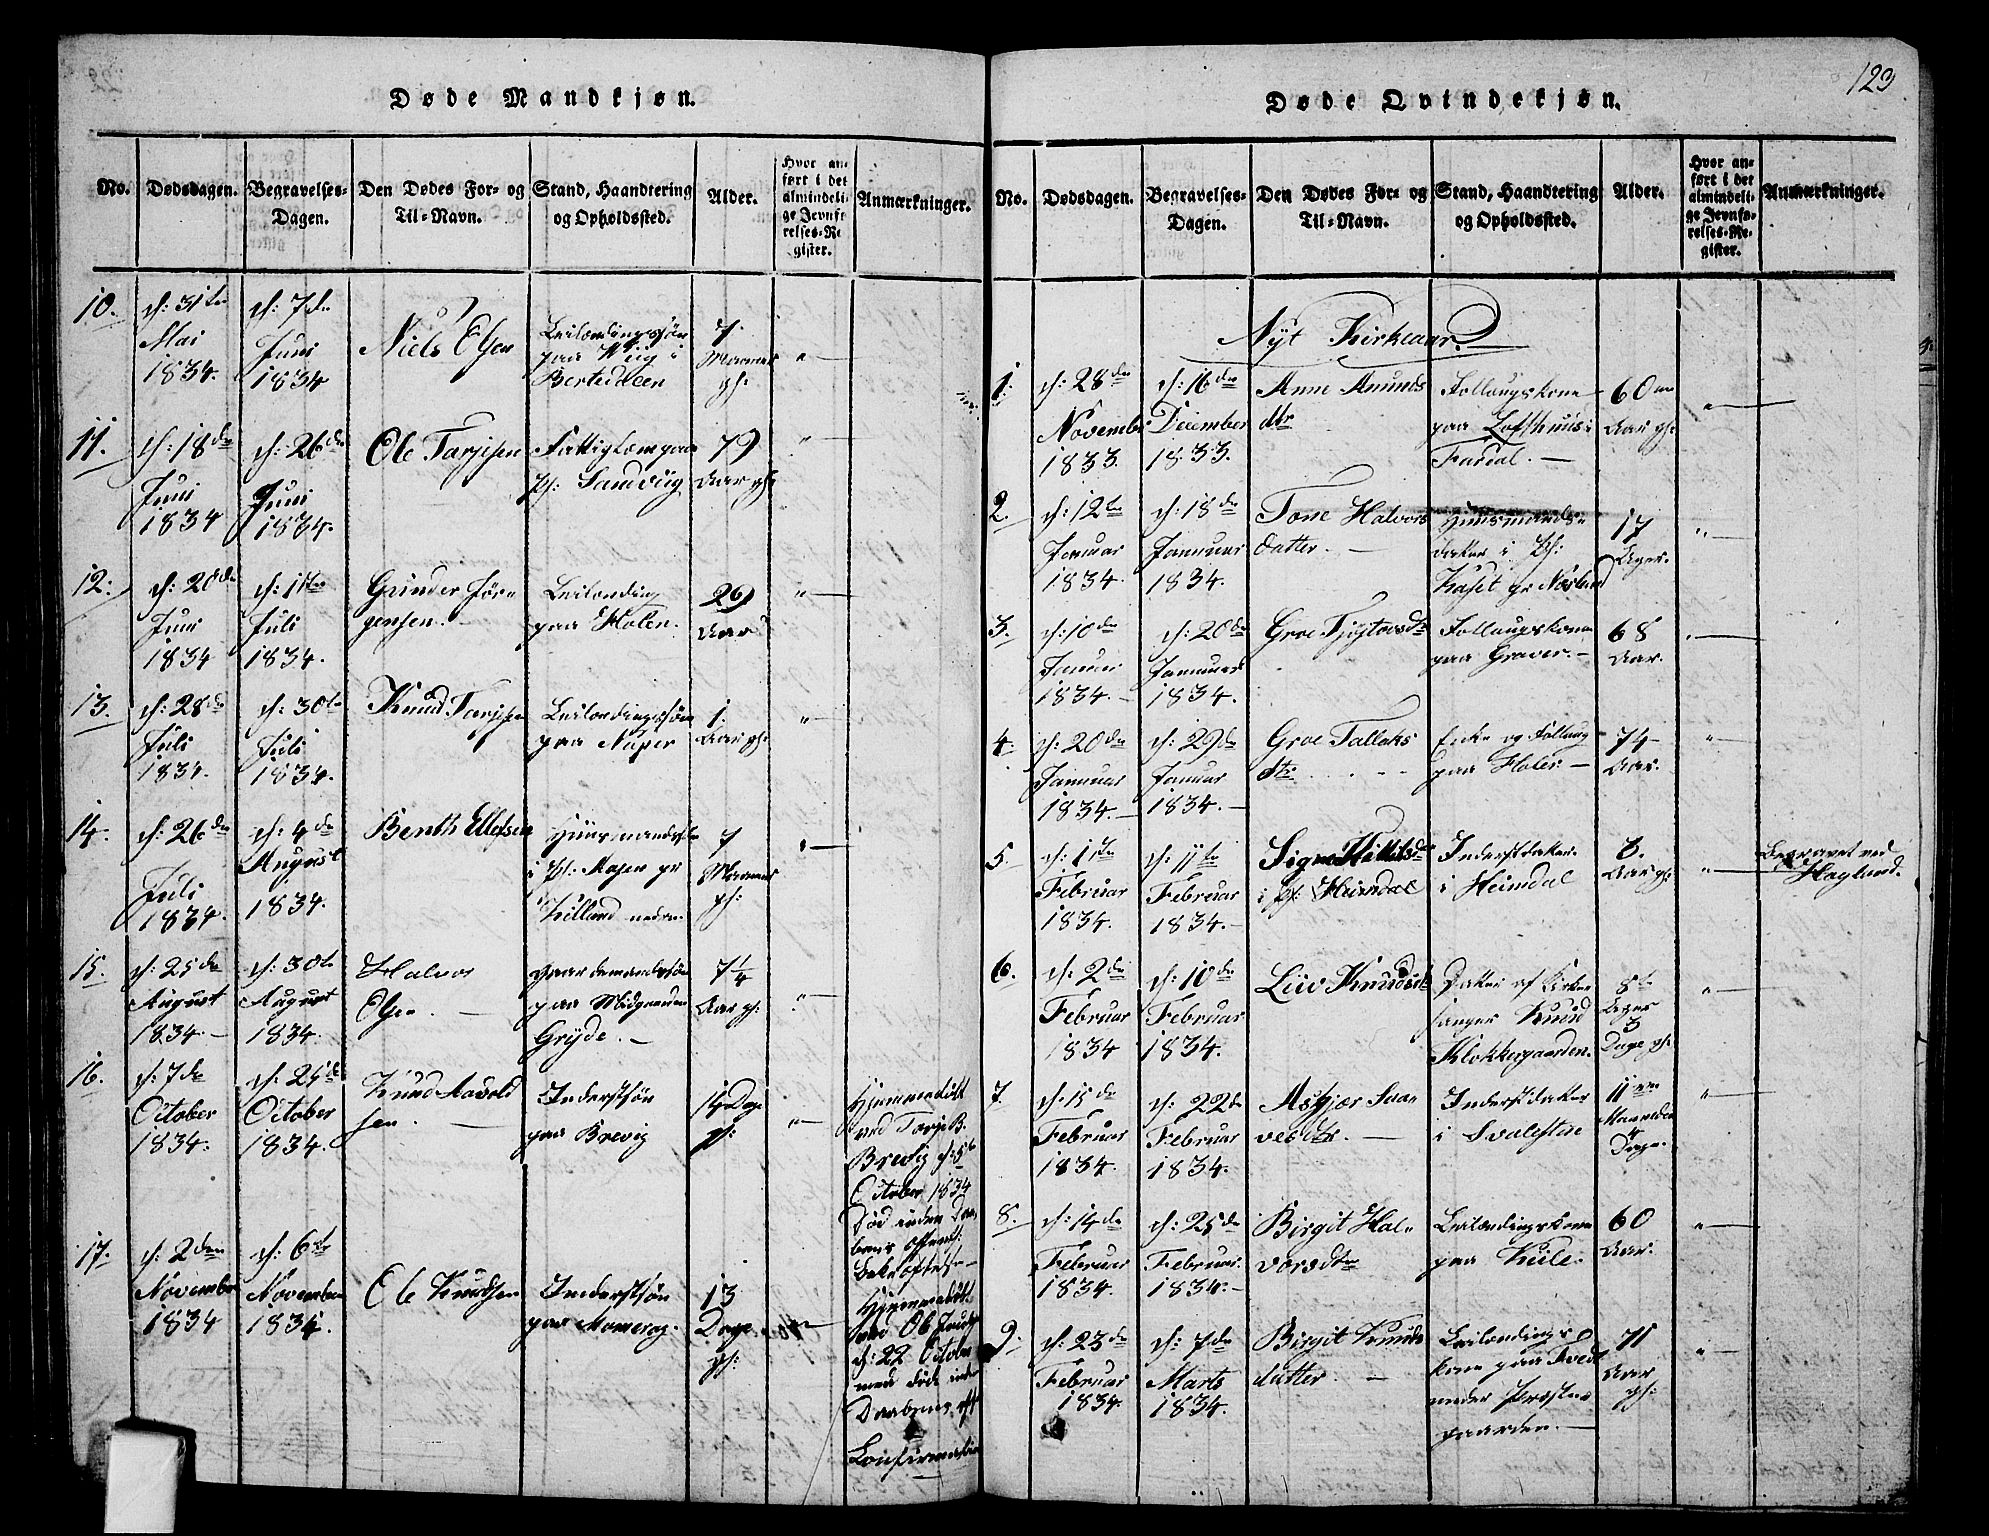 123
Døde Mandkjøn.
No. Dødsdagen. Begravelses-Dagen. Den Dødes For- og Til-Navn. Stand, Haandtering og Opholdssted. Alder. Hvor anført i det almindelige Jevnførelses-Register. Anmærkninger.
10. d: 31te Mai 1834. d: 7de Juni 1834 Niels Olsen Leilændingssøn paa 7 Maaneder gl: "
11. d: 18de Juni 1834 d: 26de Juni 1834. Ole Tarjesen Fattiglem paa Pl: Sandvig 79 Aar gl: "
12. d: 20de Juni 1834 d: 1ste Juli 1834. Gunder Jørgensen. Leilænding paa Holen. 29 Aar "
13. d: 28de Juli 1834. d: 30te Juli 1834. Knud Tarjesen Leilændingssøn paa 1. Aar gl: "
14. d: 26de Juli 1834. d: 4de August 1834. Benth Ellefsen i Pl: 7 Maaneder gl: "
15. d: 25de August 1834. d: 30te August 1834. Halvor Olsen. Gaardemandssøn paa Midgrenden Gryde. 7¼ Aar gl: "
16. d: 7de October 1834. d: 25de October 1834. Knud Aavoldsen. Inderstsøn paa Brevig 14 Dage gl: " Hjemmedøbt ved Tarje B. Brevig d: 5te October 1834 Død inden Daabens offentl:
17. d: 2den November 1834 d: 6te November 1834. Ole Knudsen Inderstsøn paa Momrag. 13 Dage gl: " Hjemmedøbt ved Ole d: 22 October men døde inden Daabens
Døde Qvindekjøn.
No. Dødsdagen. Begravelses-Dagen. Den Dødes For- og Til-Navn. Stand, Haandtering og Opholdssted. Alder. Hvor anført i det almindelige Jevnførelses-Register. Anmærkninger.
Nyt Kirkeaar.
1. d: 28de Novembr 1833. d: 16de December 1833. Anne Amundsdtr Follaugskone paa Lofthuus i Fardal. 60 Aar gl: "
2. d: 12te Januar 1834. d: 18de Januar 1834. Tone Halvorsdatter. Huusmandsdatter i Pl: 17 Uger. "
3. d: 10de Januar 1834. d: 20de Januar 1834. Groe Follaugskone paa Graver. 68 Aar. "
4. d: 20de Januar 1834. d: 29de Januar 1834. Groe Tallaksdtr Enke og Follaug paa 74 Aar. "
5. d: 1ste Februar 1834. d: 11te Februar 1834. Signe Kittilsdtr i Pl: Heimdal Inderstdatter i Heimdal 3. Aar gl: " Begravet ved Høglund.
6. d: 2de Februar 1834 d: 10de Februar 1834. Liv Knudsdtr Datter af Kirkesanger Knud Klokkergaarden. 8te Uger 3 Dage gl: "
7. d: 15de Februar 1834. d: 22de Februar 1834. Asbjør Saavesdtr. Inderstdatter i Svalestue 11 Maaneder Dage. "
8. d: 14de Februar 1834. d: 25de Februar 1834. Birgit Halvorsdtr Leilændingskone paa Kiile. 60 Aar. "
9. d: 23de Februar 1834. d: 7de Marts 1834. Birgit Knudsdatter. Leilændingskone paa Tvedt under Præstegaarden. 71 Aar gl: "